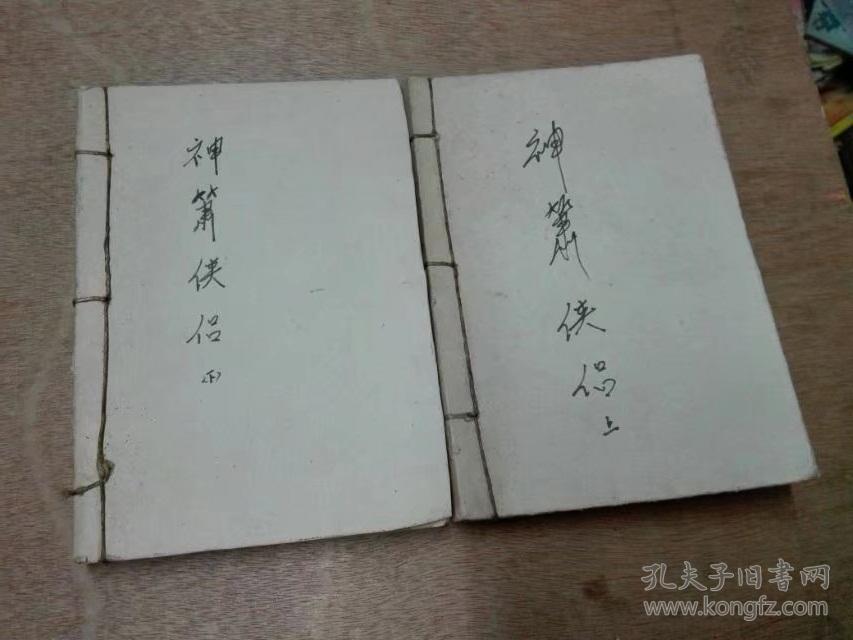 神箫侠侣
下
神箫侠侣
上
孔夫子旧书网
www.kongfz.com